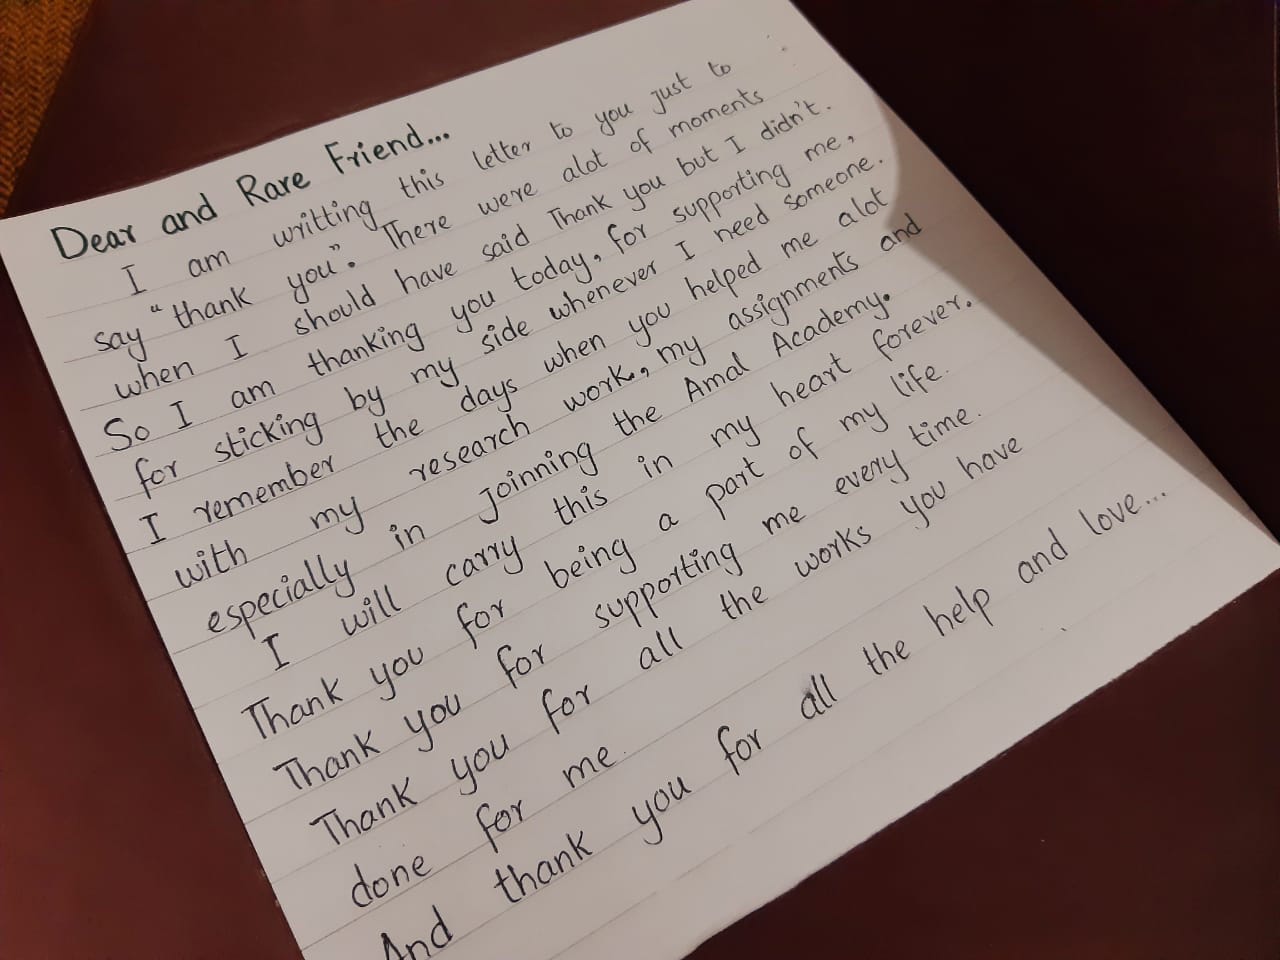 Dear and Rare Friend...
I am writting this letter to you just to
say "thank you". There were alot of moments
when I should have said Thank you but I didn't.
So I am thanking you today, for supporting me,
for sticking by my side whenever I need someone.
I remember the days when you helped me alot
with my research work, my assignments and
especially in joinning the Amal Academy.
I will carry this in my heart forever.
Thank you for being a part of my life.
Thank you for supporting me every time.
Thank you for all the works you have
done for me.
And thank you for all the help and love...